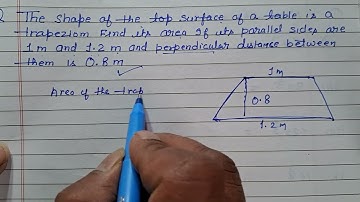 The shape of the top surface of a table is a
trapeziom Find its area If its parallel sides are
1m and 1.2 m and perpendicular distance between
them is 0.8 m
1 m
Area of the trap
0.8
1.2 m